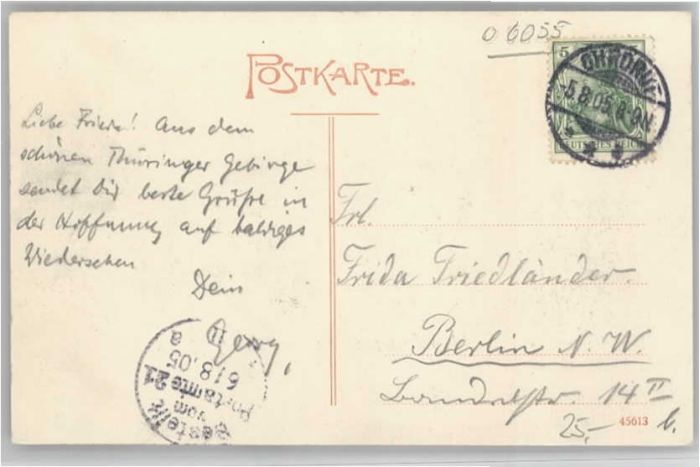 0 6055
POSTKARTE.
5
OHRDRUF
-5.8.05.8-9N.
DEUTSCHES REICH
Liebe Frieda! Aus dem
schönen Thüringer Gebirge
sendet Dir beste Grüße in
der Hoffnung auf baldiges
Wiedersehen
Dein
Georg,
Frl.
Frida Friedländer.
Berlin N. W.
14 II
Bestellt
vom
Postamte 21
6/8.05
a
25,-
45613